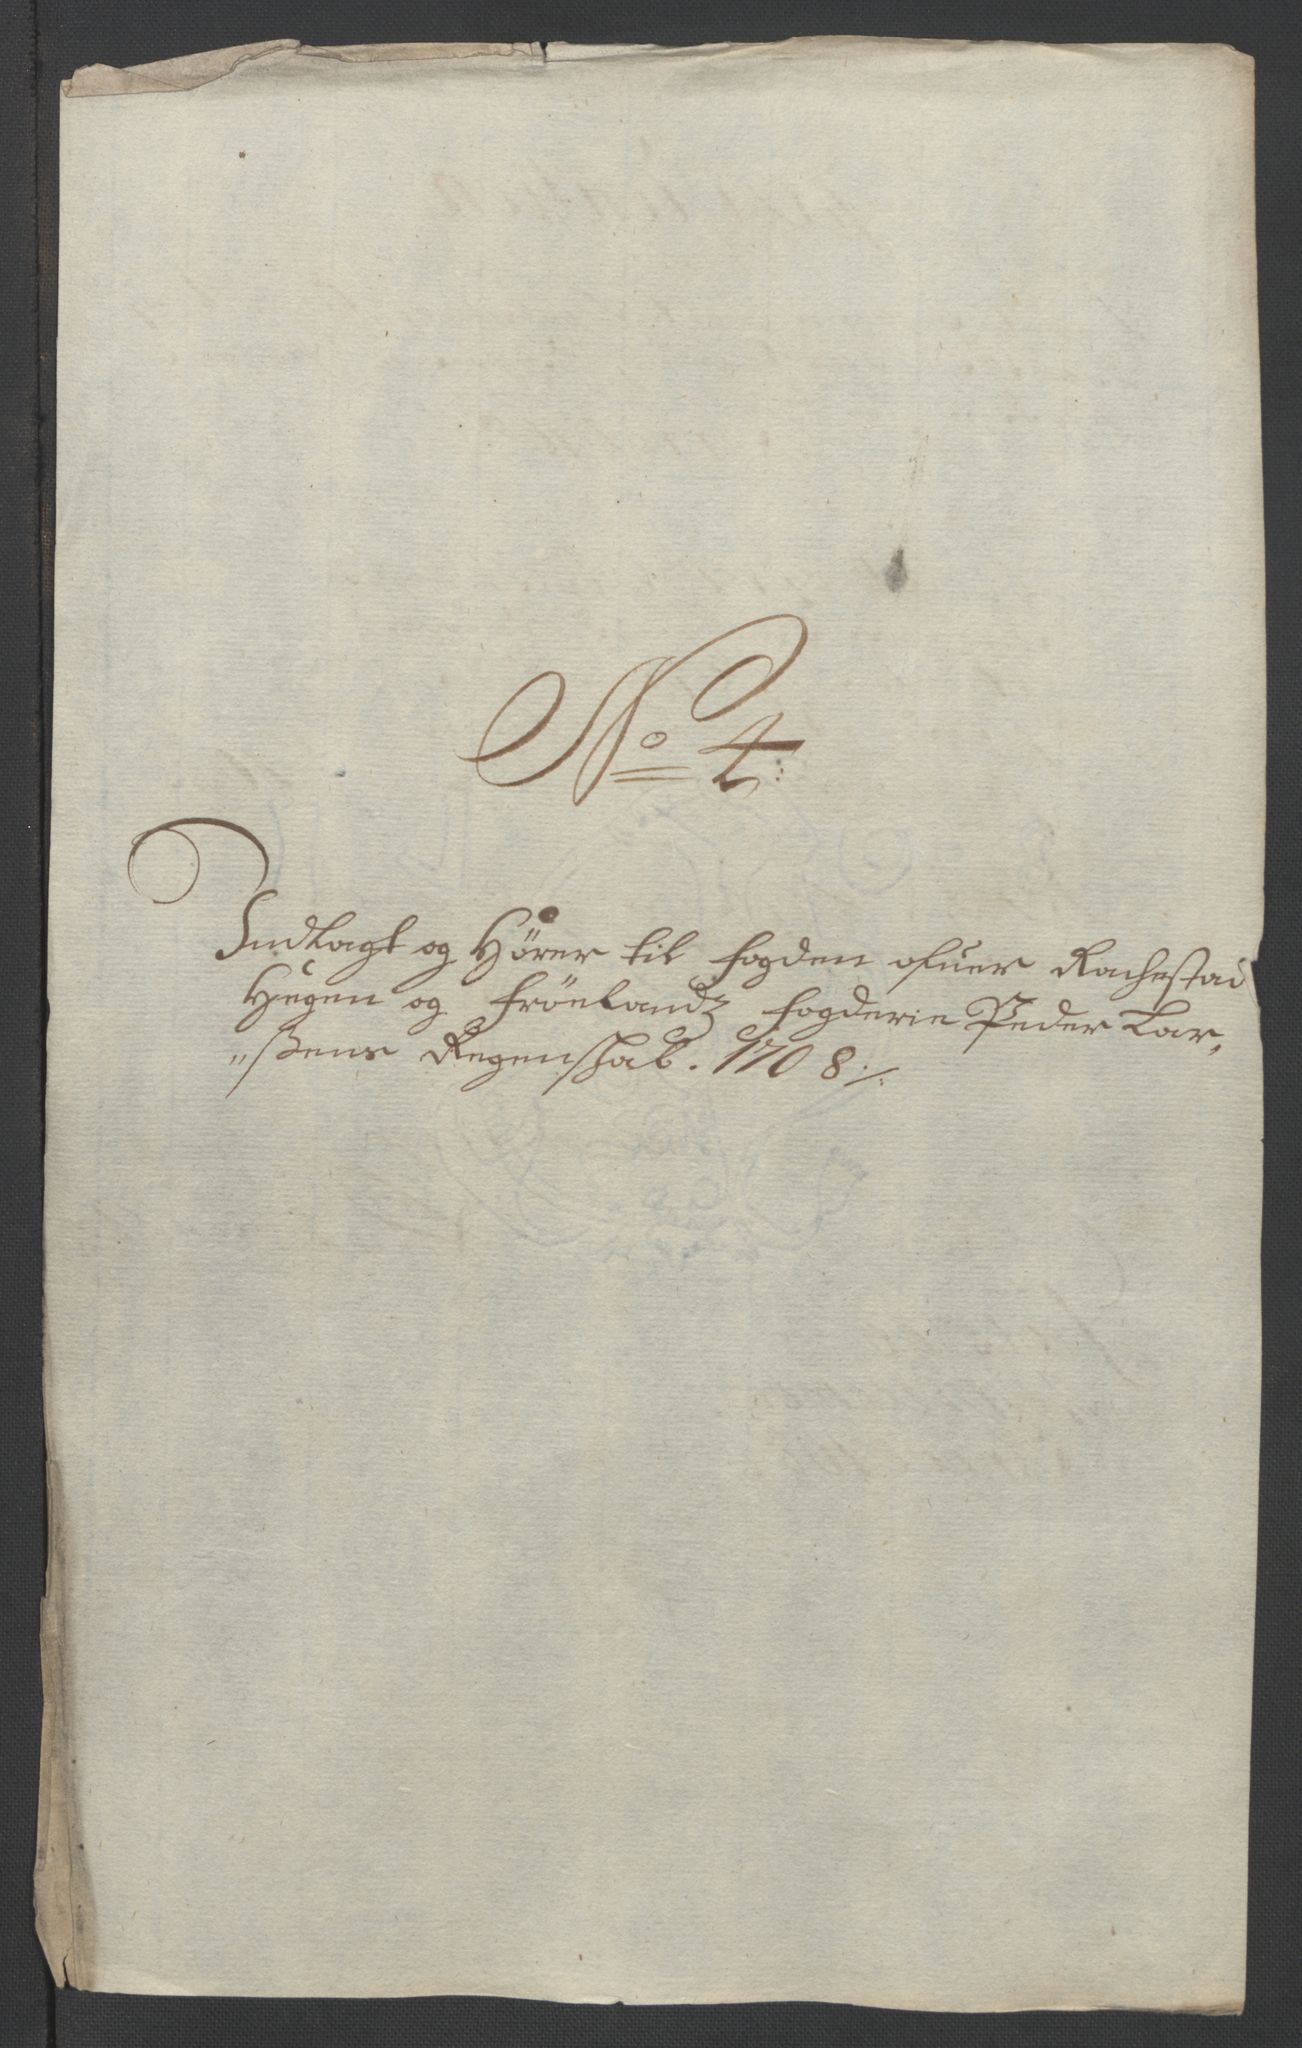 No 4:
Indlagt og Hører til fogden ofuer Rachestad
Hegen og Frönlandz fogderie Peder Lar,
„ßens Regenskab. 1708 ./.